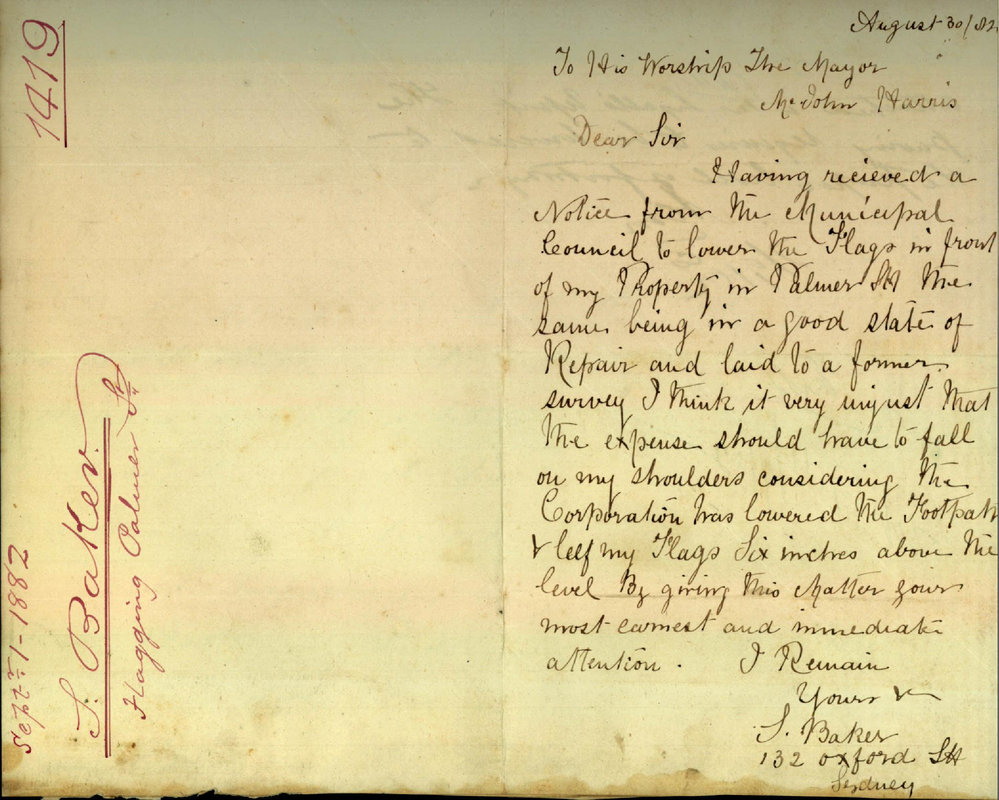 1419
Septr. 1-1882
S. Baker.
Flagging Palmer St
August 30/82
To His Worship The Mayor
Mr John Harris
Dear Sir
Having recieved a
Notice from the Municipal
Council to lower the Flags in front
of my Property in Palmer St the
same being in a good state of
Repair and laid to a former
survey I think it very unjust that
the expense should have to fall
on my shoulders considering the
Corporation has lowered the Footpath
& left my Flags Six inches above the
level By giving this Matter your
most earnest and immediate
attention. I Remain
Yours &
S. Baker
132 Oxford St
Sydney